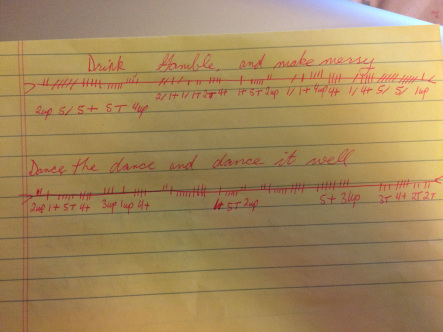 Drink Gamble, and make merry
2up 5/ 5+ 5T 4up 2/ 1+ 1/ 1T 2T 4+ 1+ 5T 2up 1/ 1+ 4up 4+ 1/ 4+ 5/ 5/ 1up
Dance the dance and dance it well
2up 1+ 5T 4+ 3up 1up 4+ 1+ 5T 2up 5+ 3up 3T 4+ 2T 2T